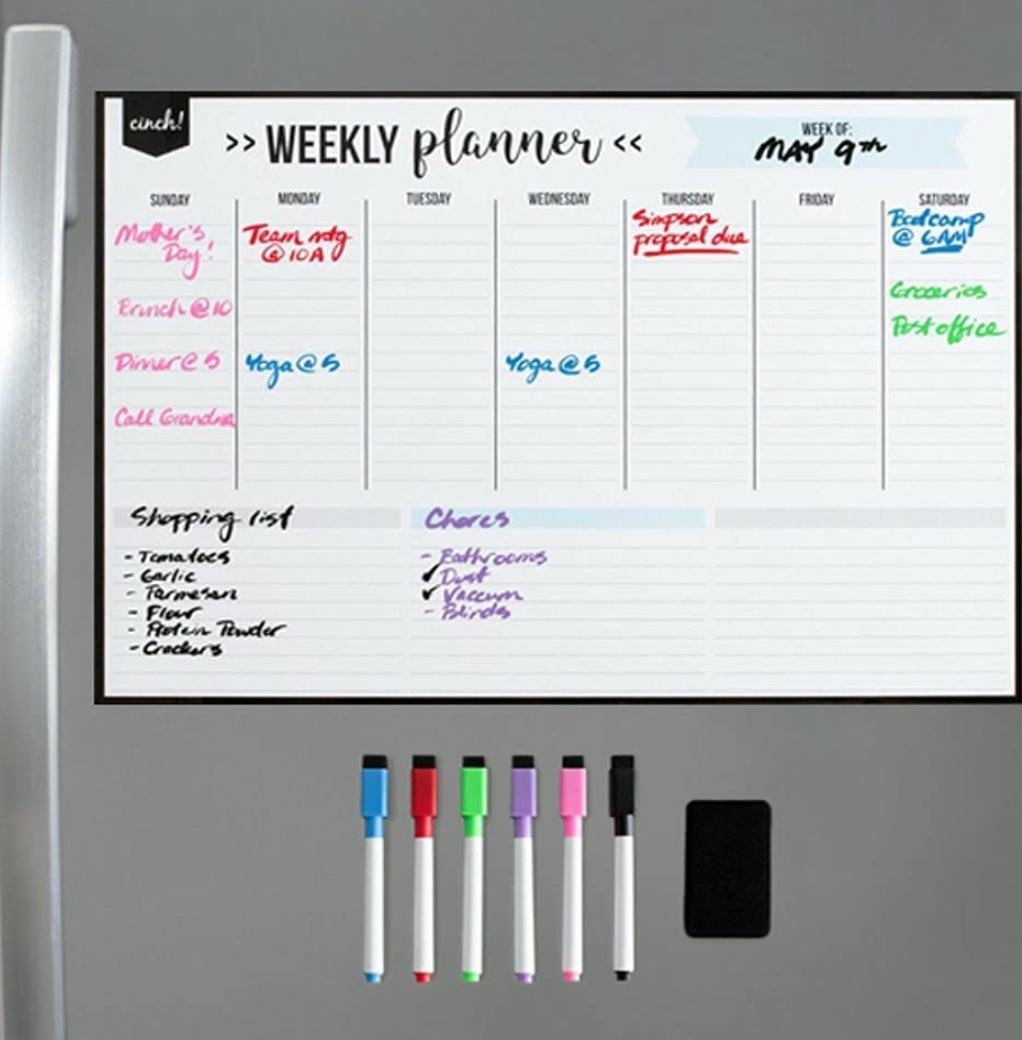 cinch!
>> WEEKLY planner <<
WEEK OF:
MAY 9TH
SUNDAY
Mother's
Day!
Brunch @ 10
Dinner @ 5
Call Grandma
MONDAY
Team mtg
@ 10A
Yoga @ 5
TUESDAY
WEDNESDAY
Yoga @ 5
THURSDAY
Simpson
proposal due
FRIDAY
SATURDAY
Bootcamp
@ 6AM
Groceries
Post office
Shopping list
- Tomatoes
- Garlic
- Parmesan
- Flour
- Protein Powder
- Crackers
Chores
- Bathrooms
✓ Dust
✓ Vaccum
- Blinds